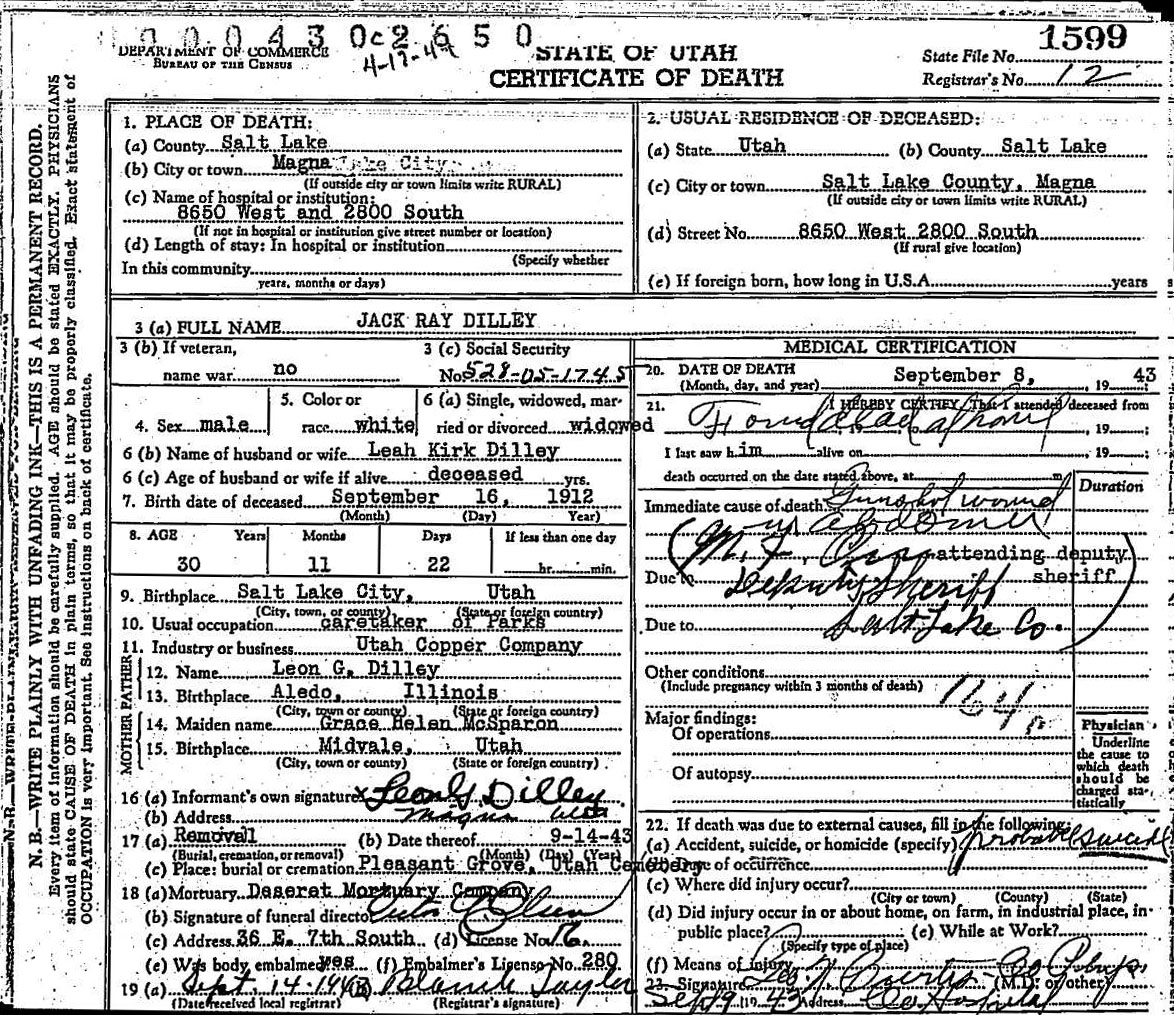 0 0 0 4 3 0c 2 6 5 0
DEPARTMENT OF COMMERCE
BUREAU OF THE CENSUS
4-17-44
STATE OF UTAH
CERTIFICATE OF DEATH
State File No. 1599
Registrar's No. 12
N. B.—WRITE PLAINLY WITH UNFADING INK—THIS IS A PERMANENT RECORD.
Every item of information should be carefully supplied. AGE should be stated EXACTLY. PHYSICIANS
should state CAUSE OF DEATH in plain terms, so that it may be properly classified. Exact statement of
OCCUPATION is very important. See instructions on back of certificate.
1. PLACE OF DEATH:
(a) County Salt Lake
(b) City or town Magna Lake City
(If outside city or town limits write RURAL)
(c) Name of hospital or institution:
8650 West and 2800 South
(If not in hospital or institution give street number or location)
(d) Length of stay: In hospital or institution
(Specify whether
In this community
years, months or days)
2. USUAL RESIDENCE OF DECEASED:
(a) State Utah (b) County Salt Lake
(c) City or town Salt Lake County, Magna
(If outside city or town limits write RURAL)
(d) Street No. 8650 West 2800 South
(If rural give location)
(e) If foreign born, how long in U.S.A. years
3 (a) FULL NAME JACK RAY DILLEY
3 (b) If veteran,
name war no
3 (c) Social Security
No. 528-05-1745
4. Sex male
5. Color or
race white
6 (a) Single, widowed, mar-
ried or divorced widowed
6 (b) Name of husband or wife Leah Kirk Dilley
6 (c) Age of husband or wife if alive deceased yrs.
7. Birth date of deceased September 16, 1912
(Month) (Day) Year)
8. AGE Years Months Days If less than one day
30 11 22 hr. min.
9. Birthplace Salt Lake City, Utah
(City, town, or county) (State or foreign country)
10. Usual occupation caretaker of Parks
11. Industry or business Utah Copper Company
FATHER
12. Name Leon G. Dilley
13. Birthplace Aledo, Illinois
(City, town or county) (State or foreign country)
MOTHER
14. Maiden name Grace Helen McSparon
15. Birthplace Midvale, Utah
(City, town or county) (State or foreign country)
16 (a) Informant's own signature x Leon G Dilley
(b) Address Magna Utah
17 (a) Removal (b) Date thereof 9-14-43
(Burial, cremation, or removal) (Month) (Day) (Year)
(c) Place: burial or cremation Pleasant Grove, Utah Cemetery
18 (a) Mortuary Deseret Mortuary Company
(b) Signature of funeral director Olsen
(c) Address 36 E. 7th South (d) License No. 16.
(e) Was body embalmed yes (f) Embalmer's License No. 280
19 (a) Sept. 14-1943 (B) Blanche Taylor
(Date received local registrar) (Registrar's signature)
MEDICAL CERTIFICATION
20. DATE OF DEATH
(Month, day, and year) September 8, , 19 43
21. I HEREBY CERTIFY, That I attended deceased from
, 19 , 19 ;
Found dead at home
I last saw h im alive on , 19 ;
death occurred on the date stated above, at m
Duration
Immediate cause of death Gunshot wound
of abdomen
(M. F. attending deputy
Due to Deputy Sheriff sheriff
Due to Salt Lake Co. )
Other conditions
(Include pregnancy within 3 months of death)
164
Major findings:
Of operations
Of autopsy
Physician
Underline
the cause to
which death
should be
charged sta-
tistically
22. If death was due to external causes, fill in the following:
(a) Accident, suicide, or homicide (specify) probable suicide
(b) Date of occurrence
(c) Where did injury occur?
(City or town) (County) (State)
(d) Did injury occur in or about home, on farm, in industrial place, in-
public place? (e) While at Work?
(Specify type of place)
(f) Means of injury
23. Signature Co Phys (M.D. or other)
Sept 9 19 43 Address Co Hospital